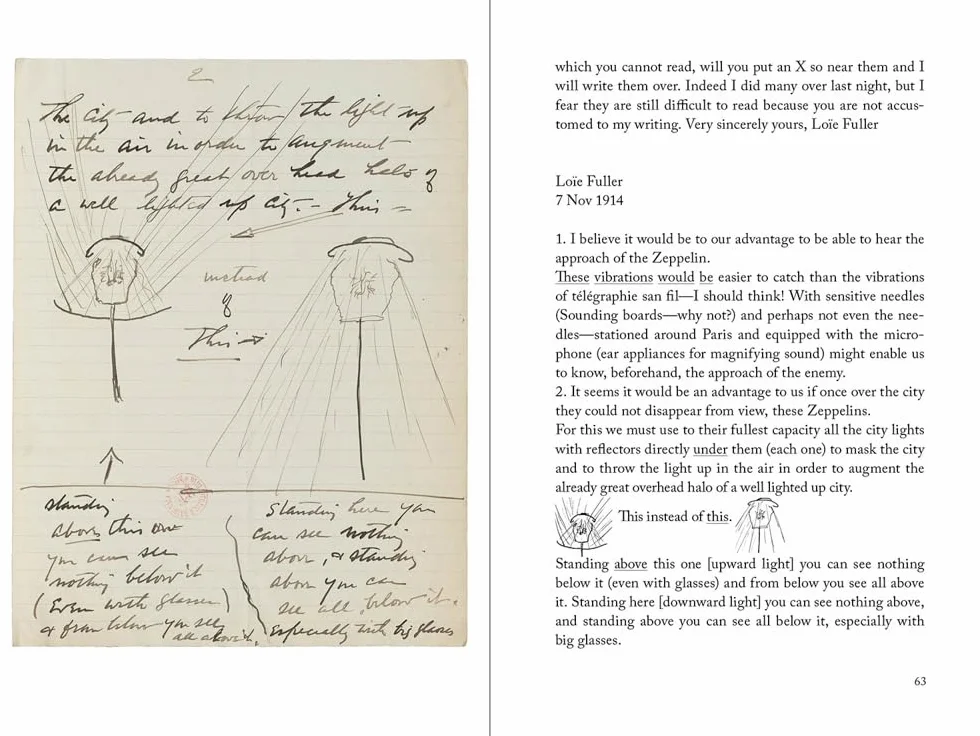 2
the city and to throw the light up
in the air in order to augment
the already great over head halo of
a well lighted up city. – This –
instead
of
This
standing
above this one
you can see
nothing below it
(Even with glasses)
& from below you see
all above it.
Standing here you
can see nothing
above, & standing
above you can
see all below it.
Especially with big glasses
which you cannot read, will you put an X so near them and I
will write them over. Indeed I did many over last night, but I
fear they are still difficult to read because you are not accus-
tomed to my writing. Very sincerely yours, Loïe Fuller
Loïe Fuller
7 Nov 1914
1. I believe it would be to our advantage to be able to hear the
approach of the Zeppelin.
These vibrations would be easier to catch than the vibrations
of télégraphie san fil—I should think! With sensitive needles
(Sounding boards—why not?) and perhaps not even the nee-
dles—stationed around Paris and equipped with the micro-
phone (ear appliances for magnifying sound) might enable us
to know, beforehand, the approach of the enemy.
2. It seems it would be an advantage to us if once over the city
they could not disappear from view, these Zeppelins.
For this we must use to their fullest capacity all the city lights
with reflectors directly under them (each one) to mask the city
and to throw the light up in the air in order to augment the
already great overhead halo of a well lighted up city.
This instead of this.
Standing above this one [upward light] you can see nothing
below it (even with glasses) and from below you see all above
it. Standing here [downward light] you can see nothing above,
and standing above you can see all below it, especially with
big glasses.
63